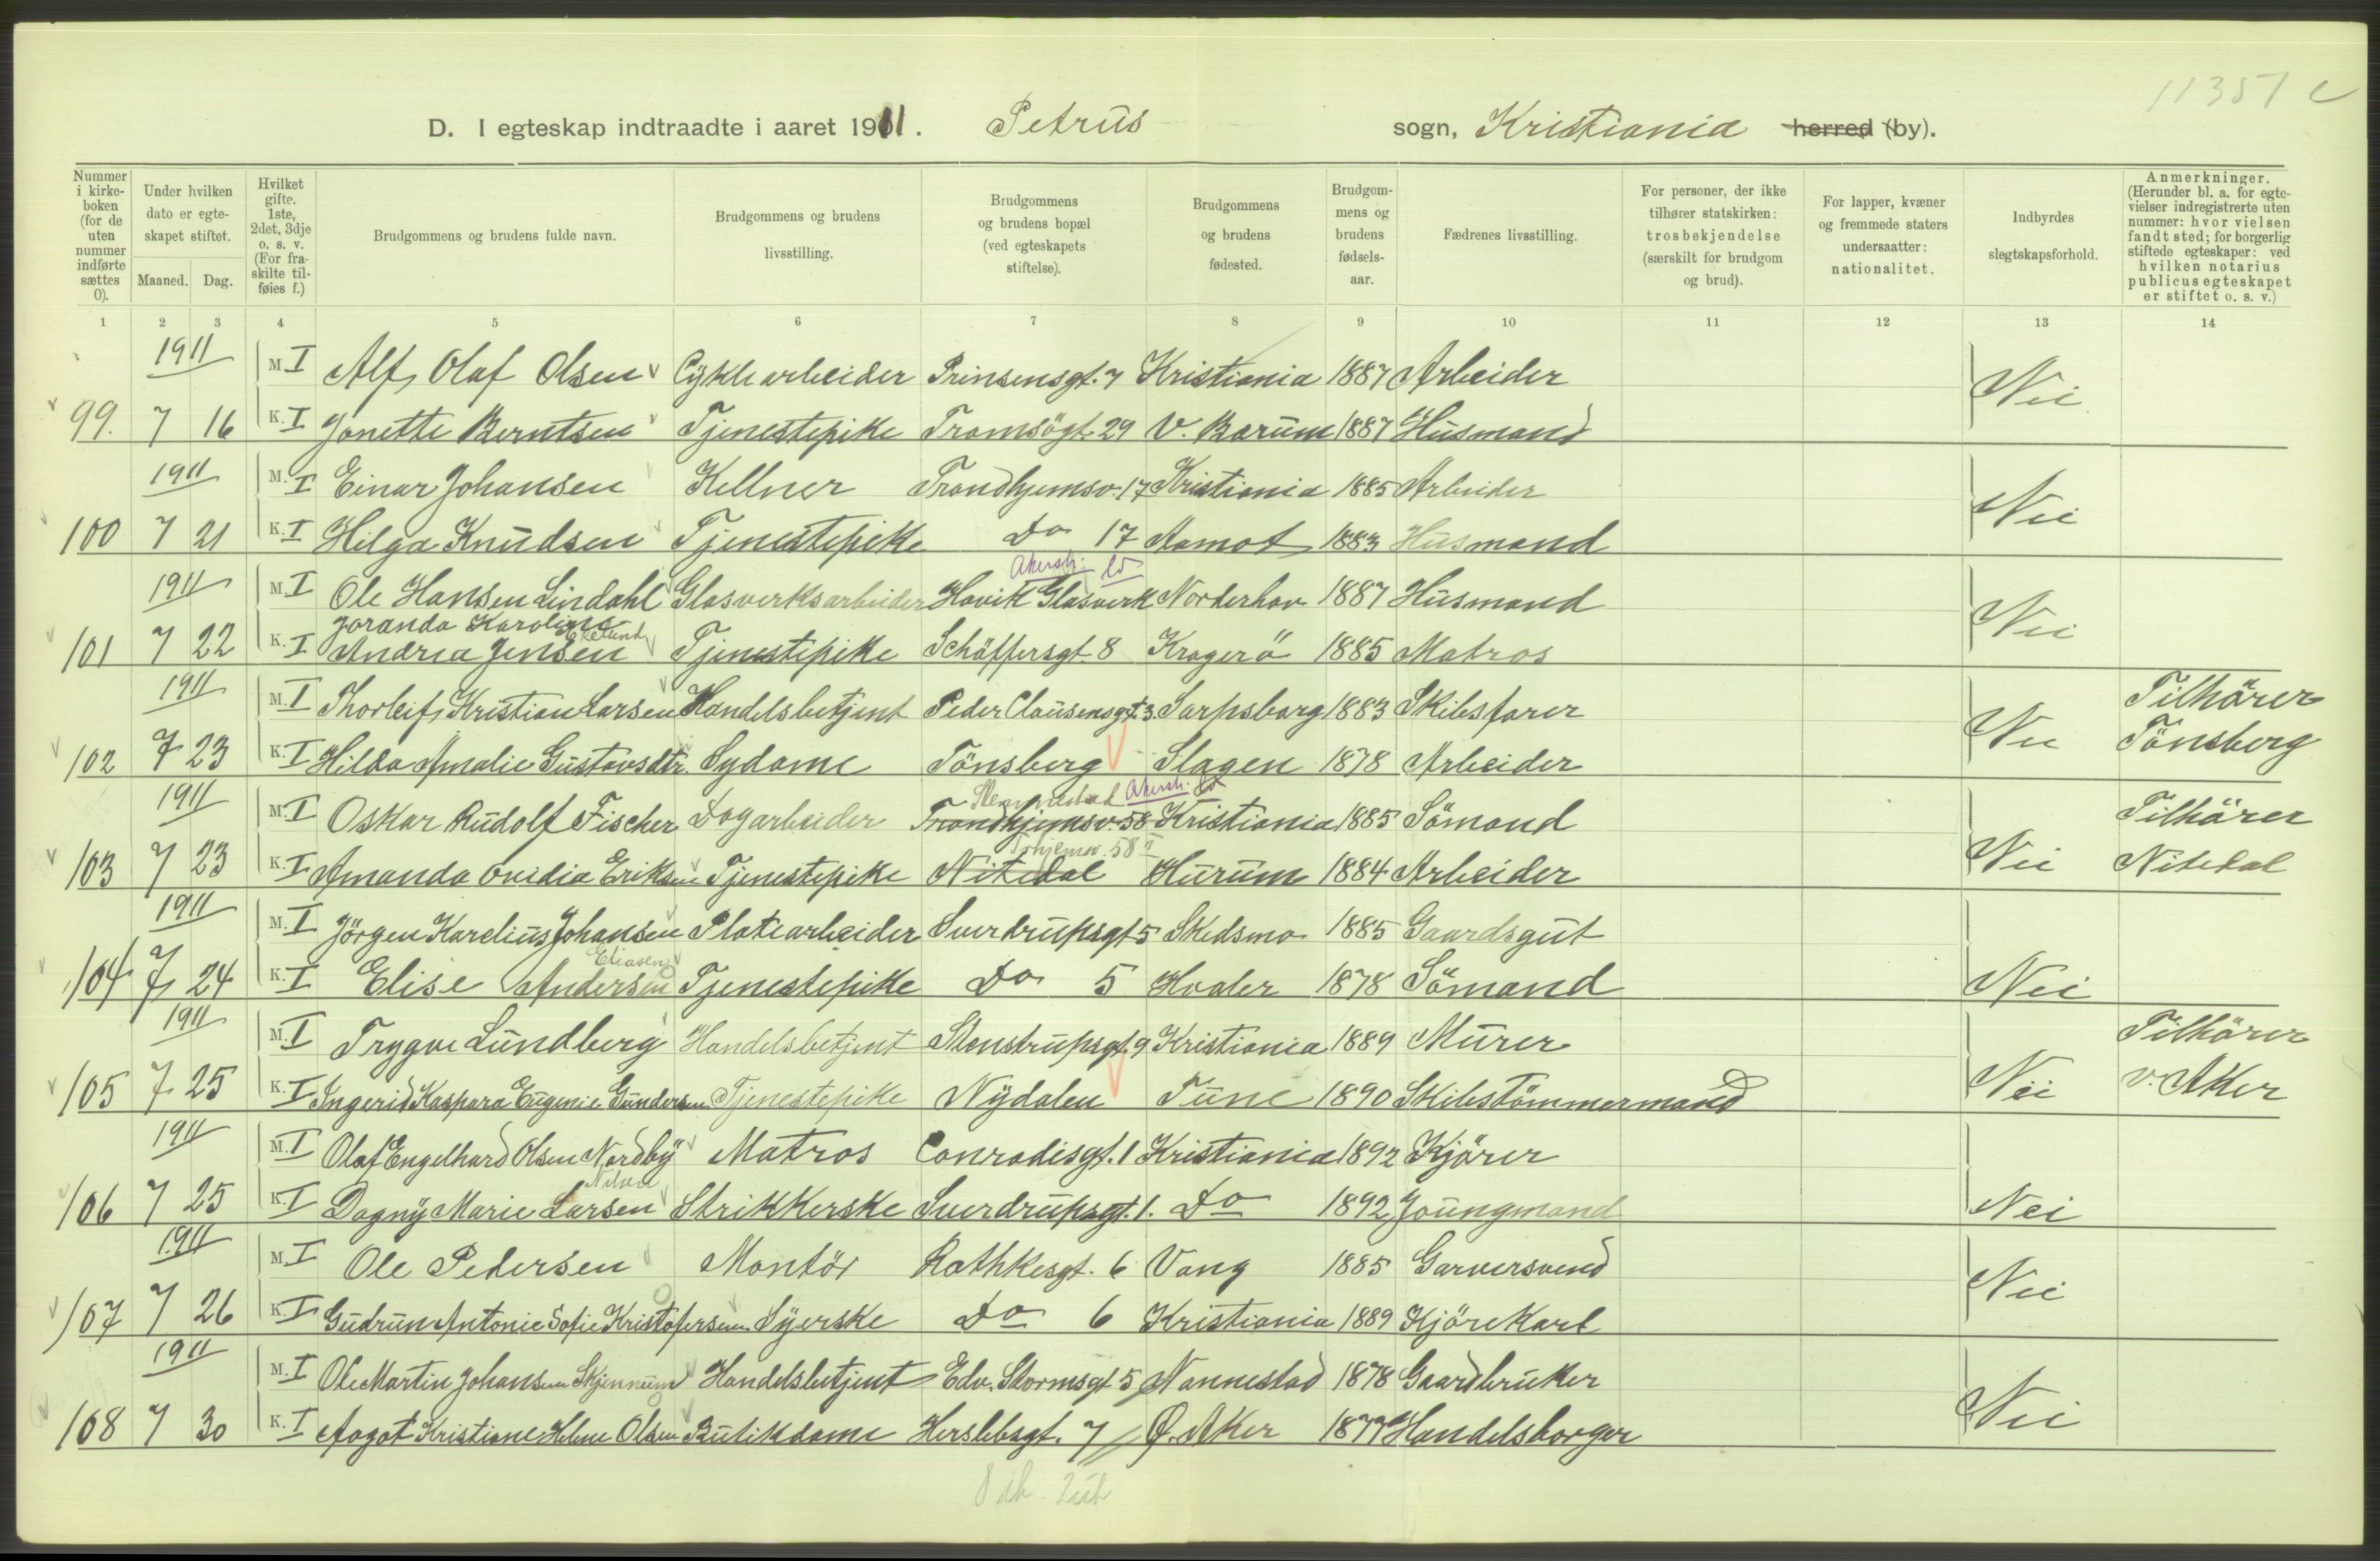 11351 c
D. I egteskap indtraadte i aaret 1911. Petrus sogn, Kristiania herred (by).
Nummer i kirkeboken (for de uten nummer indførte sættes 0).
Under hvilken dato er egteskapet stiftet.
Maaned. Dag.
Hvilket gifte. 1ste, 2det, 3dje o. s. v. (For fraskilte tilføies f.)
Brudgommens og brudens fulde navn.
Brudgommens og brudens livsstilling.
Brudgommens og brudens bopæl (ved egteskapets stiftelse).
Brudgommens og brudens fødested.
Brudgommens og brudens fødselsaar.
Fædrenes livsstilling.
For personer, der ikke tilhører statskirken: trosbekjendelse (særskilt for brudgom og brud).
For lapper, kvæner og fremmede staters undersaatter: nationalitet.
Indbyrdes slegtskapsforhold.
Anmerkninger. (Herunder bl. a. for egtevielser indregistrerte uten nummer: hvor vielsen fandt sted; for borgerlig stiftede egteskaper: ved hvilken notarius publicus egteskapet er stiftet o. s. v.)
1 2 3 4 5 6 7 8 9 10 11 12 13 14
1911 M. I Alf Olaf Olsen Cyklearbeider Prinsensgt. 7 Kristiania 1887 Arbeider
99. 7 16 K. I Jonette Berntsen Tjenestepike Tromsögt. 29 V. Bærum 1887 Husmand Nei
1911 M. I Einar Johansen Kellner Trondhjemsv. 17 Kristiania 1885 Arbeider
100 7 21 K. I Helga Knudsen Tjenestepike Do 17 Aamot 1883 Husmand Nei
Akersh.
1911 M. I Ole Hansen Lindahl Glasverksarbeider Hövik Glasverk Norderhov 1887 Husmand
Joranda Karoline
Ekelund
101 7 22 K. I Andrea Jensen Tjenestepike Schäffersgt. 8 Kragerö 1885 Matros Nei
1911 M. I Thorleif Kristian Larsen Handelsbetjent Peder Clausensgt. 3. Sarpsborg 1883 Skibsförer Tilhörer
102 7 23 K. I Hilda Amalie Gustavsdtr. Sydame Tönsberg Slagen 1878 Arbeider Nei Tönsberg
Slemmestad Akersh.
1911 M. I Oskar Rudolf Fischer Dagarbeider Trondhjemsv. 58 Kristiania 1885 Sömand Tilhörer
Trhjemsv. 58 II
103 7 23 K. I Amanda Ovidia Eriksen Tjenestepike Nitedal Hurum 1884 Arbeider Nei Nitedal
1911 M. I Jörgen Karelius Johansen Platearbeider Sverdrupsgt 5 Skedsmo 1885 Gaardsgut
Eliasen
104 7 24 K. I Elise Andersen Tjenestepike Do 5 Hvaler 1878 Sömand Nei
1911 M. I Trygve Lundberg Handelsbetjent Stenstrupsgt. 9 Kristiania 1889 Murer Tilhörer
105 7 25 K. I Ingerid Kaspara Eugenie Gundersen Tjenestepike Nydalen Tune 1890 Skibstömmermand Nei V. Aker
1911 M. I Olaf Engelhard Olsen Nordby Matros Conradisgt. 1 Kristiania 1892 Kjörer
106 7 25 K. I Dagny Marie Larsen Strikkerske Sverdrupsgt. 1. Do 1892 Joungmand Nei
1911 M. I Ole Pedersen Montör Rathkesgt. 6 Vang 1885 Garversvend
107 7 26 K. I Gudrun Antonie Sofie Kristofersen Syerske Do 6 Kristiania 1889 Kjörekarl Nei
1911 M. I Ole Martin Johansen Skjennum Handelsbetjent Edv. Stormsgt 5 Nannestad 1878 Gaardbruker
108 7 30 K. I Aagot Kristiane Helene Olsen Butikdame Herslebsgt. 7 Ö. Aker 1877 Handelsborger Nei